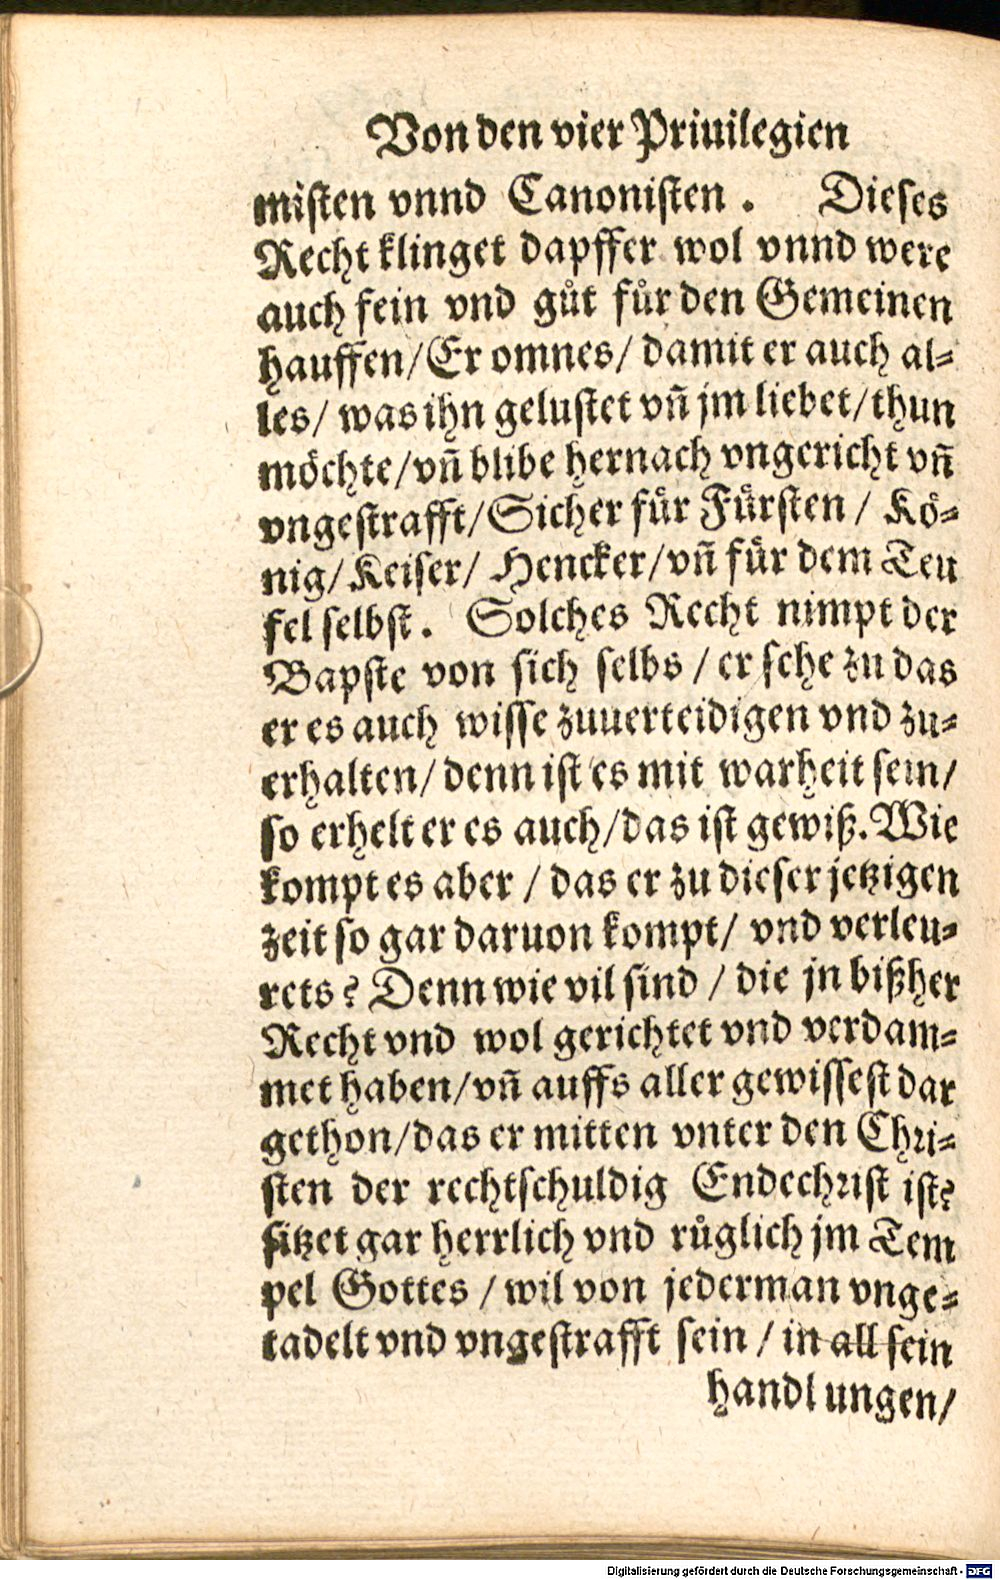 Von den vier Priuilegien
misten vnnd Canonisten. Dieses
Recht klinget dapffer wol vnnd were
auch fein vnd gůt fůr den Gemeinen
hauffen/Er omnes/ damit er auch al⸗
les/ was ihn gelustet vñ jm liebet/thun
möchte/vñ blibe hernach vngericht vñ
vngestrafft/Sicher fůr Fürsten/ Kö⸗
nig/Keiser/ Hencker/vñ fůr dem Teu
fel selbst. Solches Recht nimpt der
Bapste von sich selbs/er sehe zu das
er es auch wisse zuuerteidigen vnd zu⸗
erhalten/denn ist es mit warheit sein/
so erhelt er es auch/das ist gewiß. Wie
kompt es aber/das er zu dieser jetzigen
zeit so gar daruon kompt/ vnd verleu⸗
rets? Denn wie vil sind/ die jn bißher
Recht vnd wol gerichtet vnd verdam⸗
met haben/vñ auffs aller gewissest dar
gethon/das er mitten vnter den Chri⸗
sten der rechtschuldig Endechrist ist?
sitzet gar herrlich vnd růglich jm Tem
pel Gottes/wil von jederman vnge⸗
tadelt vnd vngestrafft sein/in all sein
handlungen/
Digitalisierung gefördert durch die Deutsche Forschungsgemeinschaft - DFG